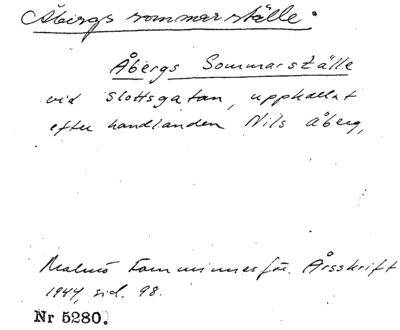 Åbergs sommarställe.
Åbergs Sommarställe
vid Slottsgatan, uppkallat
efter handlanden Nils Åberg,
Malmö Fornminnesför. Årsskrift
1944, sid. 98.
Nr 5280.